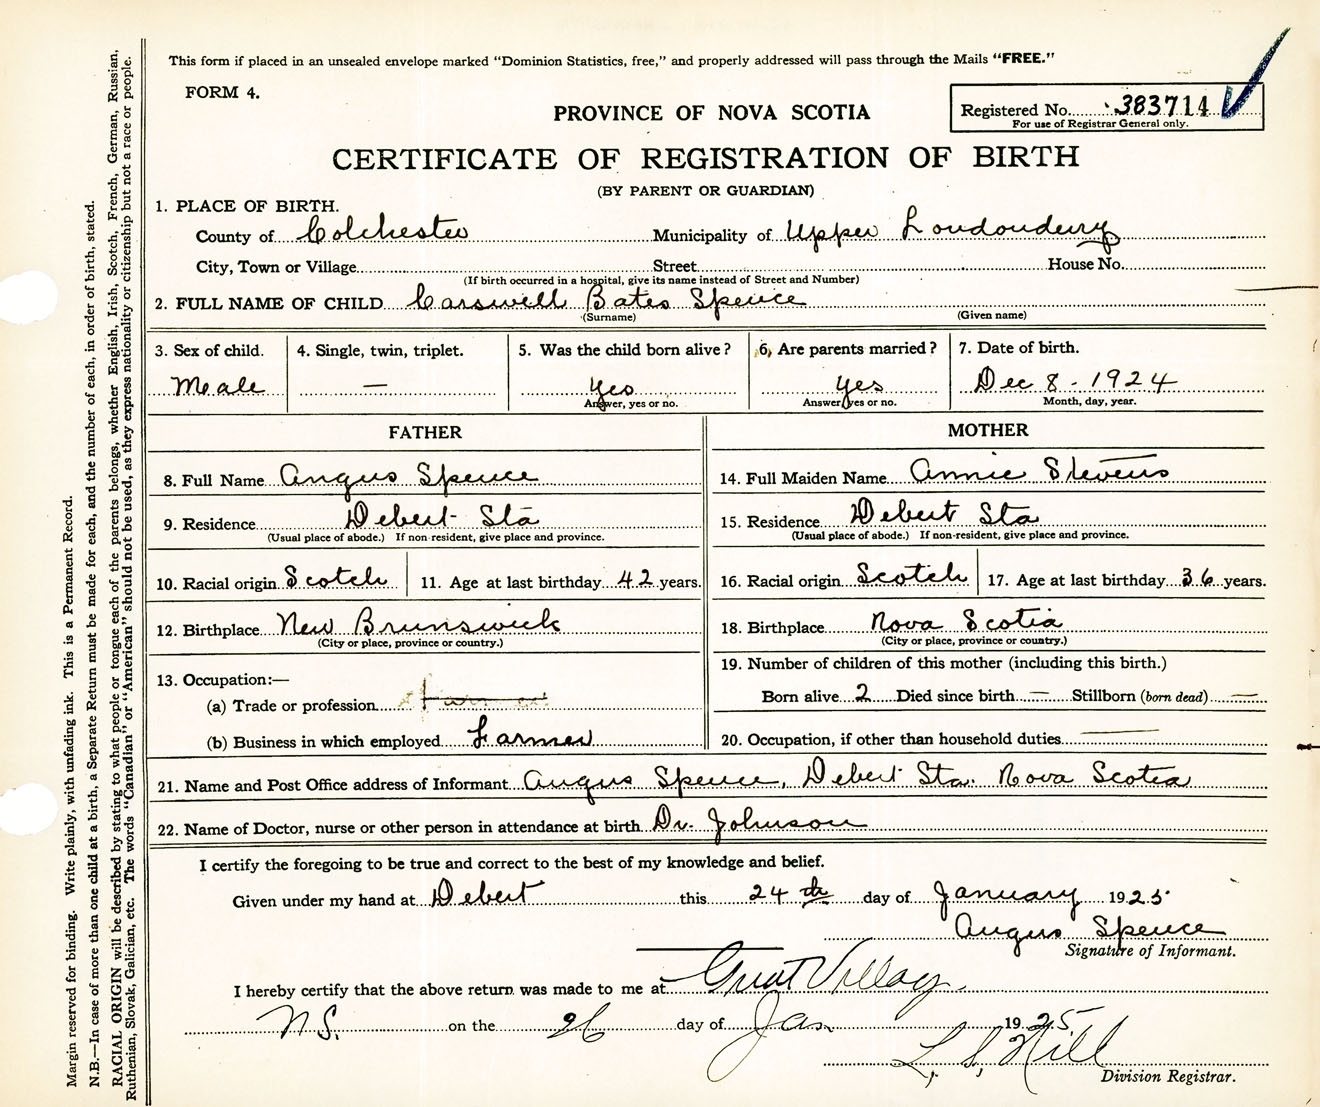 This form if placed in an unsealed envelope marked "Dominion Statistics, free," and properly addressed will pass through the Mails "FREE."
FORM 4.
PROVINCE OF NOVA SCOTIA
Registered No. 383714
For use of Registrar General only.
CERTIFICATE OF REGISTRATION OF BIRTH
(BY PARENT OR GUARDIAN)
1. PLACE OF BIRTH.
County of Colchester Municipality of Upper Londonderry
City, Town or Village Street House No.
(If birth occurred in a hospital, give its name instead of Street and Number)
2. FULL NAME OF CHILD Carswell Bates Spence
(Surname) (Given name)
3. Sex of child. 4. Single, twin, triplet. 5. Was the child born alive? 6. Are parents married? 7. Date of birth.
Meale — Yes Yes Dec 8 - 1924
Answer, yes or no. Answer, yes or no. Month, day, year.
FATHER MOTHER
8. Full Name Angus Spence 14. Full Maiden Name Annie Stevens
9. Residence Debert Sta 15. Residence Debert Sta
(Usual place of abode.) If non-resident, give place and province. (Usual place of abode.) If non-resident, give place and province.
10. Racial origin Scotch 11. Age at last birthday 42 years. 16. Racial origin Scotch 17. Age at last birthday 36 years.
12. Birthplace New Brunswick 18. Birthplace Nova Scotia
(City or place, province or country.) (City or place, province or country.)
19. Number of children of this mother (including this birth.)
13. Occupation:—
(a) Trade or profession Born alive 2 Died since birth — Stillborn (born dead) —
(b) Business in which employed Farmer 20. Occupation, if other than household duties —
21. Name and Post Office address of Informant Angus Spence, Debert Sta. Nova Scotia
22. Name of Doctor, nurse or other person in attendance at birth Dr. Johnson
I certify the foregoing to be true and correct to the best of my knowledge and belief.
Given under my hand at Debert this 24th day of January 1925
Angus Spence
Signature of Informant.
I hereby certify that the above return was made to me at Great Village,
N.S. on the 26 day of Jan 1925
L. S. Hill
Division Registrar.
Margin reserved for binding. Write plainly, with unfading ink. This is a Permanent Record.
N.B.—In case of more than one child at a birth, a Separate Return must be made for each, and the number of each, in order of birth, stated.
RACIAL ORIGIN will be described by stating to what people or tongue each of the parents belongs, whether English, Irish, Scotch, French, German, Russian,
Ruthenian, Slovak, Galician, etc. The words "Canadian" or "American" should not be used, as they express nationality or citizenship but not a race or people.